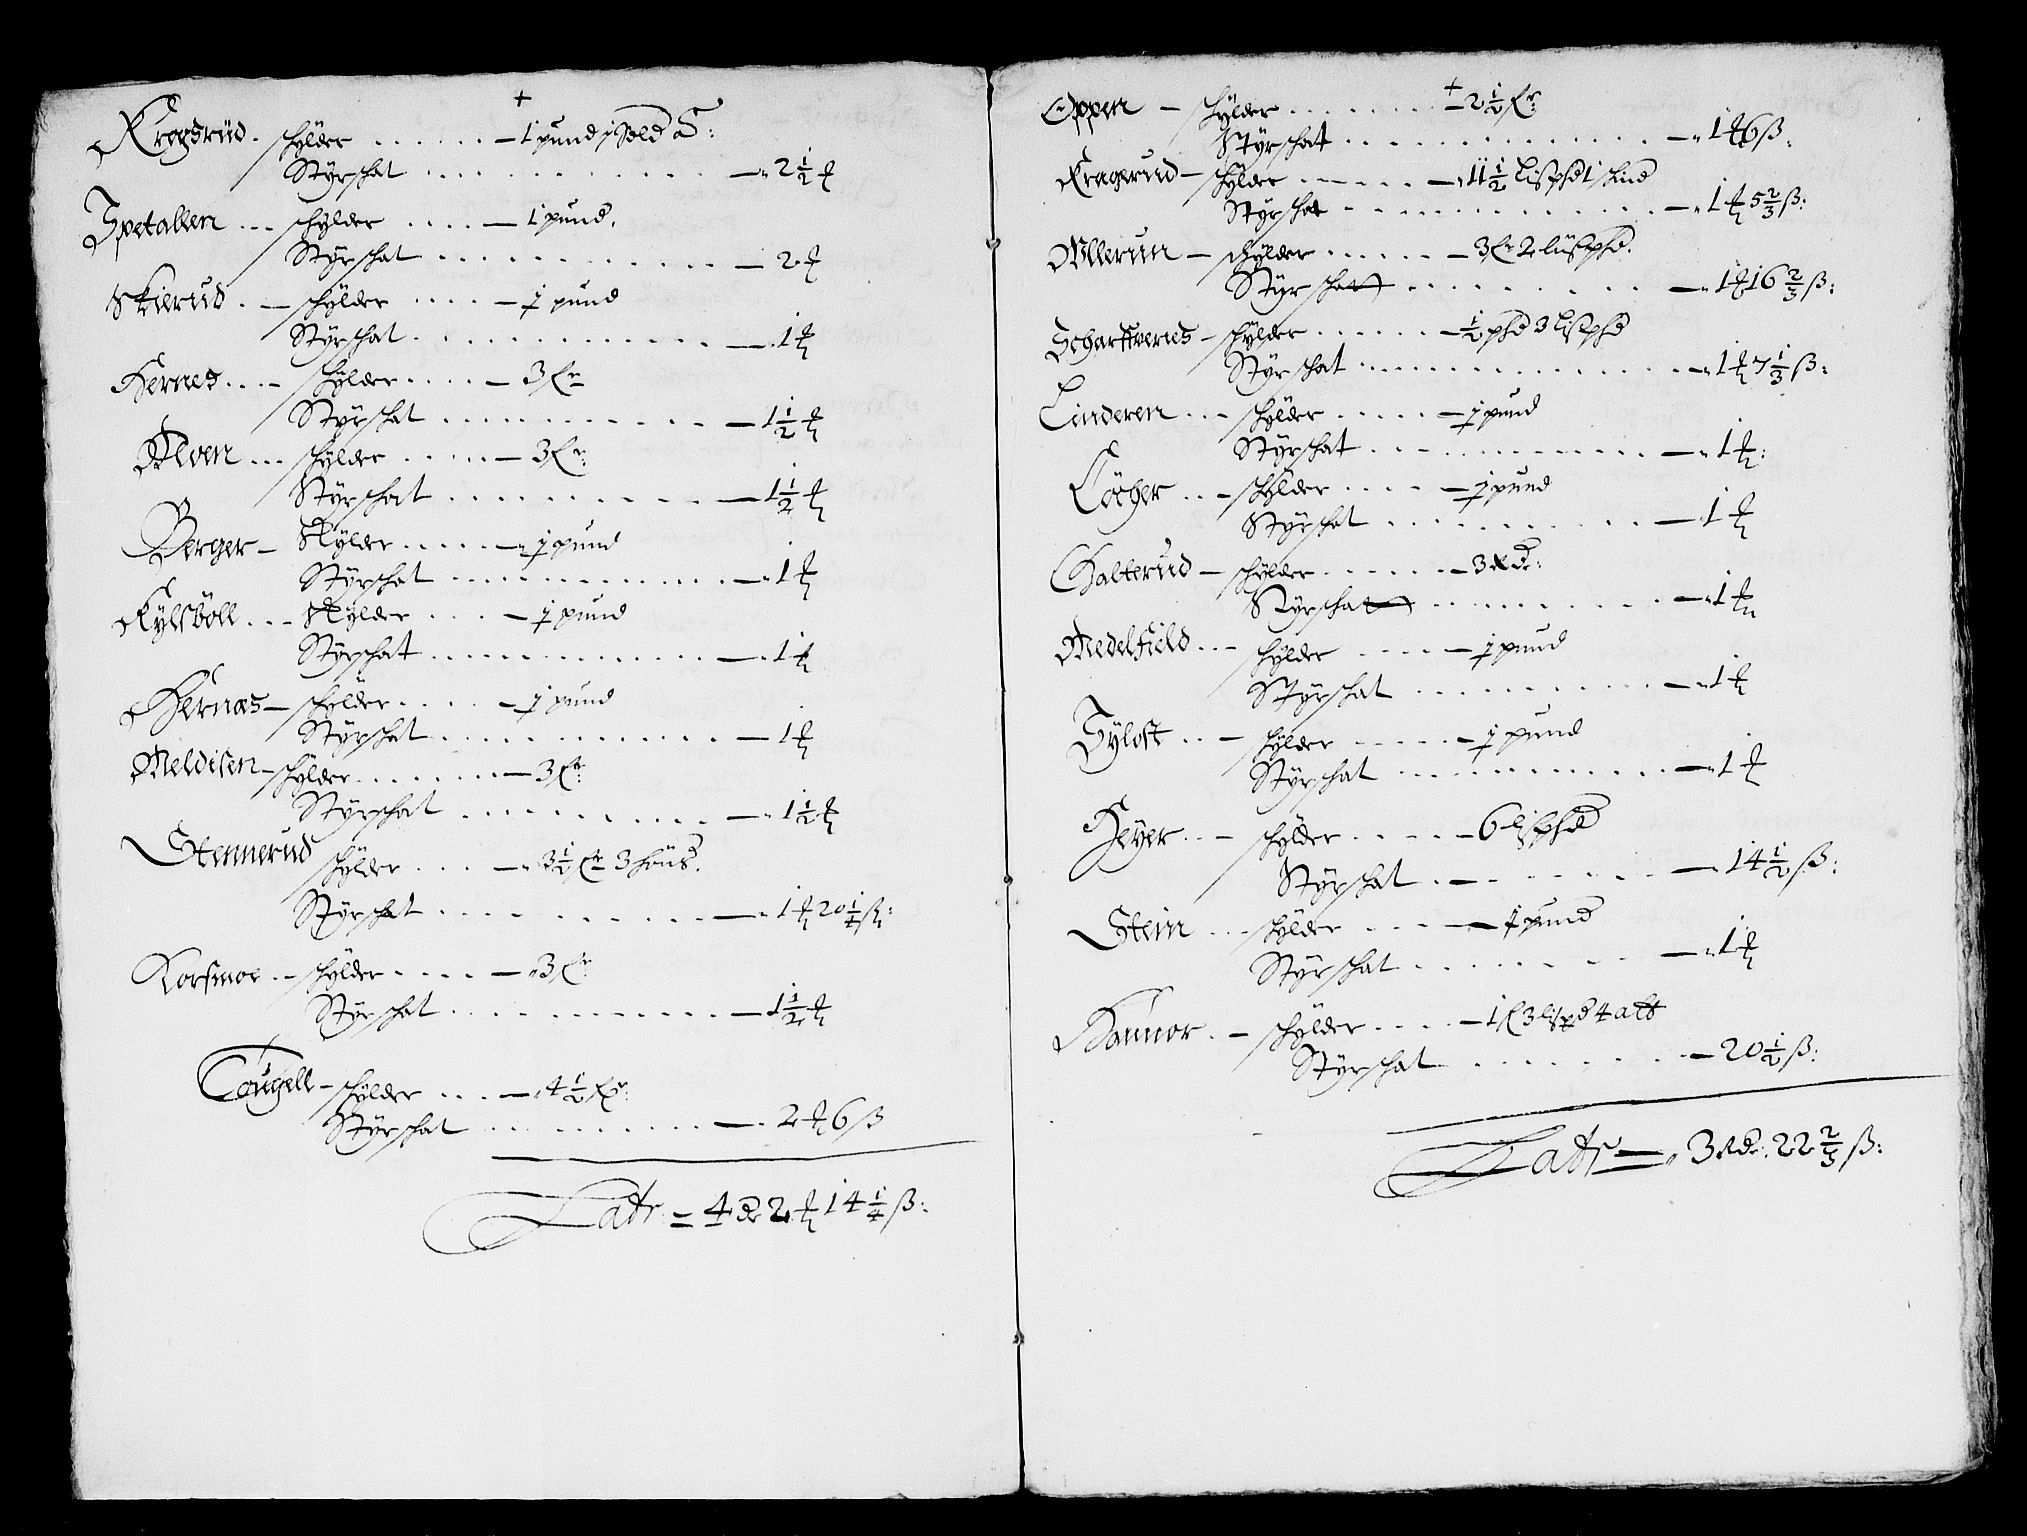 Krogsrud . schylder ...... — 1 pund j Sold S:
Styrschat ............ — 2 1/2 ₰
Spetallen ... schylder .... — 1 pund.
Styrschat ............ — 2 ₰
Skierud .. — schylder .... — j pund
Styrschat ............ — 1 ₰
Hernes ... — schylder .... — 3 fr
Styrschat ............ — 1 1/2 ₰
Alven ... schylder ..... — 3 fr:
Styrschat ............ — 1 1/2 ₰
Berger — Skylder ..... — j pund
Styrschat ............ — 1 ₰
Kylsböll ... Skylder ... — j pund
Styrschat ............ — 1 ₰
Hernæs — schylder ..... — j pund
Styrschat ............ — 1 ₰
Meldisen — schylder ....... — 3 fr:
Styrschat ............ — 1 1/2 ₰
Stennerud schylder .... — 3 1/2 fr 3 hüds.
Styrschat ............ — 1 ₰ 20 1/4 ß:
Korsmoe .. — schylder .... — 3 fr:
Styrschat ............ — 1 1/2 ₰
Toughell — schylder ... — 4 1/2 fr:
Styrschat ............ — 2 ₰ 6 ß
Latr = 4 de 2 ₰ 14 1/4 ß:
Oppen — schylder ...... — 2 1/2 fr:
Styrschatt ............ — 1 ₰ 6 ß:
Kragerud — schylder ...... — 11 1/2 Lispd 1 skind
Styrschat ............ — 1 ₰ 5 2/3 ß:
Ullerun — schylder ...... — 3 fr 2 lüspd.
Styrschatt ............ — 1 ₰ 16 2/3 ß:
Scharffvernes — schylder ...... — 1/2 phd 3 Lisphd
Styrschat ............ — 1 ₰ 7 1/3 ß:
Linderen ... schylder ..... — j pund
Styrschat ............ — 1 ₰:
Löcher ... schylder ..... — j pund
Styrschat ............ — 1 ₰
Galterud — schylder ...... — 3 Rd:
Styrschatt ............ — 1 ₰
Medelfield ... schylder ..... — j pund
Styrschat ............ — 1 ₰
Tyloft ... — schylder ..... — j pund
Styrschat ............ — 1 ₰
Heyer ... — schylder ..... — 6 lisphd
Styrschat ............ — 14 1/2 ß:
Stein ... schylder ..... — j pund
Styrschat ............ — 1 ₰
Hannor .. — schylder .... — 1 f 3 lispd 4 att
Styrschat ............ — 20 1/2 ß:
Latr = 3 Rde. 22 2/3 ß: